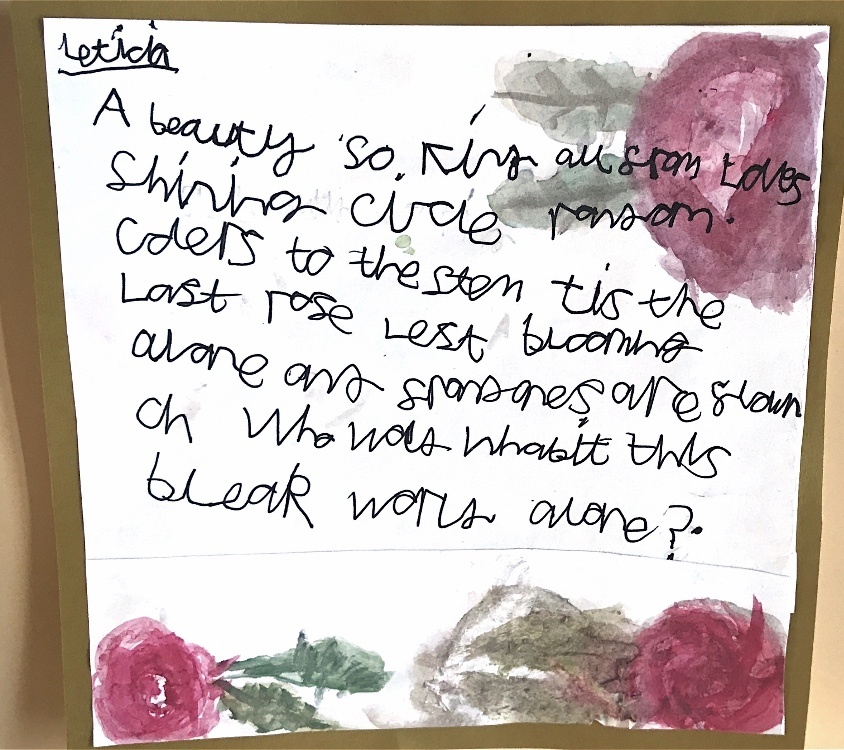 Leticia
A beauty so, King all from Loves
Shining circle
to the stem tis the
Last rose Lest blooming
alone and are flown
oh who inhabit this
bleak world alone?